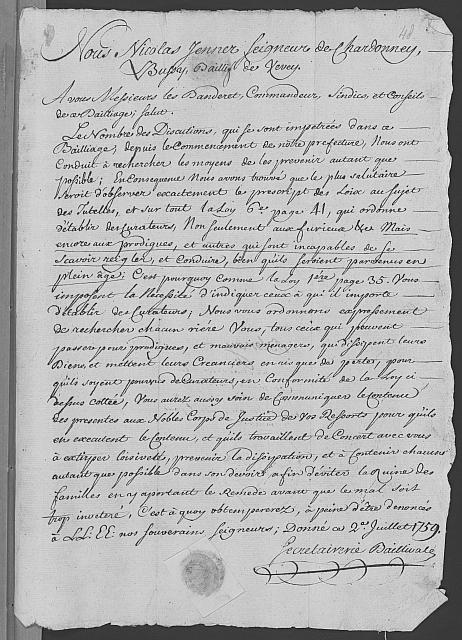 48
Nous Nicolas Jenner Seigneur de Chardonney,
Bussy, Baillif de Vevey.
A vous Messieurs les Banderet, Commandeur, Sindics, et Conseils
de ce Bailliage; Salut.
Le Nombre des Discutions, qui se sont impétrées dans ce
Bailliage, depuis le Commencement de nôtre préfecture, Nous ont
Conduit à rechercher les moyens de les prevenir autant que
possible; En Consequence Nous avons trouvé que le plus salutaire
seroit d'observer exactement le prescript des Loix au sujet
des Tutelles, et sur tout la Loy 6e page 41, qui ordonne
d'établir des Curateurs, Non seulement aux furieux &c Mais
encore aux prodigues, et autres qui sont incapables de se
scavoir regler, et conduire, bien qu'ils seroient parvenus en
plein age; C'est pourquoy comme la Loy 1ere page 35. Vous
imposent la Necessité d'indiquer ceux à qui il importe
d'établir des Curateurs; Nous vous ordonnons expressement
de rechercher chacun riere Vous, tous ceux qui peuvent
passer pour prodigues, et mauvais ménagers, qui dissipent leurs
Biens, et mettent leurs Creanciers, en risque de perter, pour
qu'ils soyent pourvus de Curateurs, en Conformité de la Loy ci
dessus cottée, Vous aurez aussy soin de Communiquer le Contenu
des presentes aux Nobles Corps de Justice de vos Ressorts pour qu'ils
en executent le Contenu, et qu'ils travaillent de Concert avec vous
à extirper l'oisiveté, prevenir la dissipation, et à Contenir chacun
autant que possible dans son devoir, afin d'éviter la Ruine des
familles en y aportant le Remede avant que le mal soit
trop inveteré, C'est à quoy obtempererez, à peine d'être denoncés
à LL: EE: nos souverains seigneurs; Donné ce 2e. Juillet 1759.
Secretairerie Baillivale